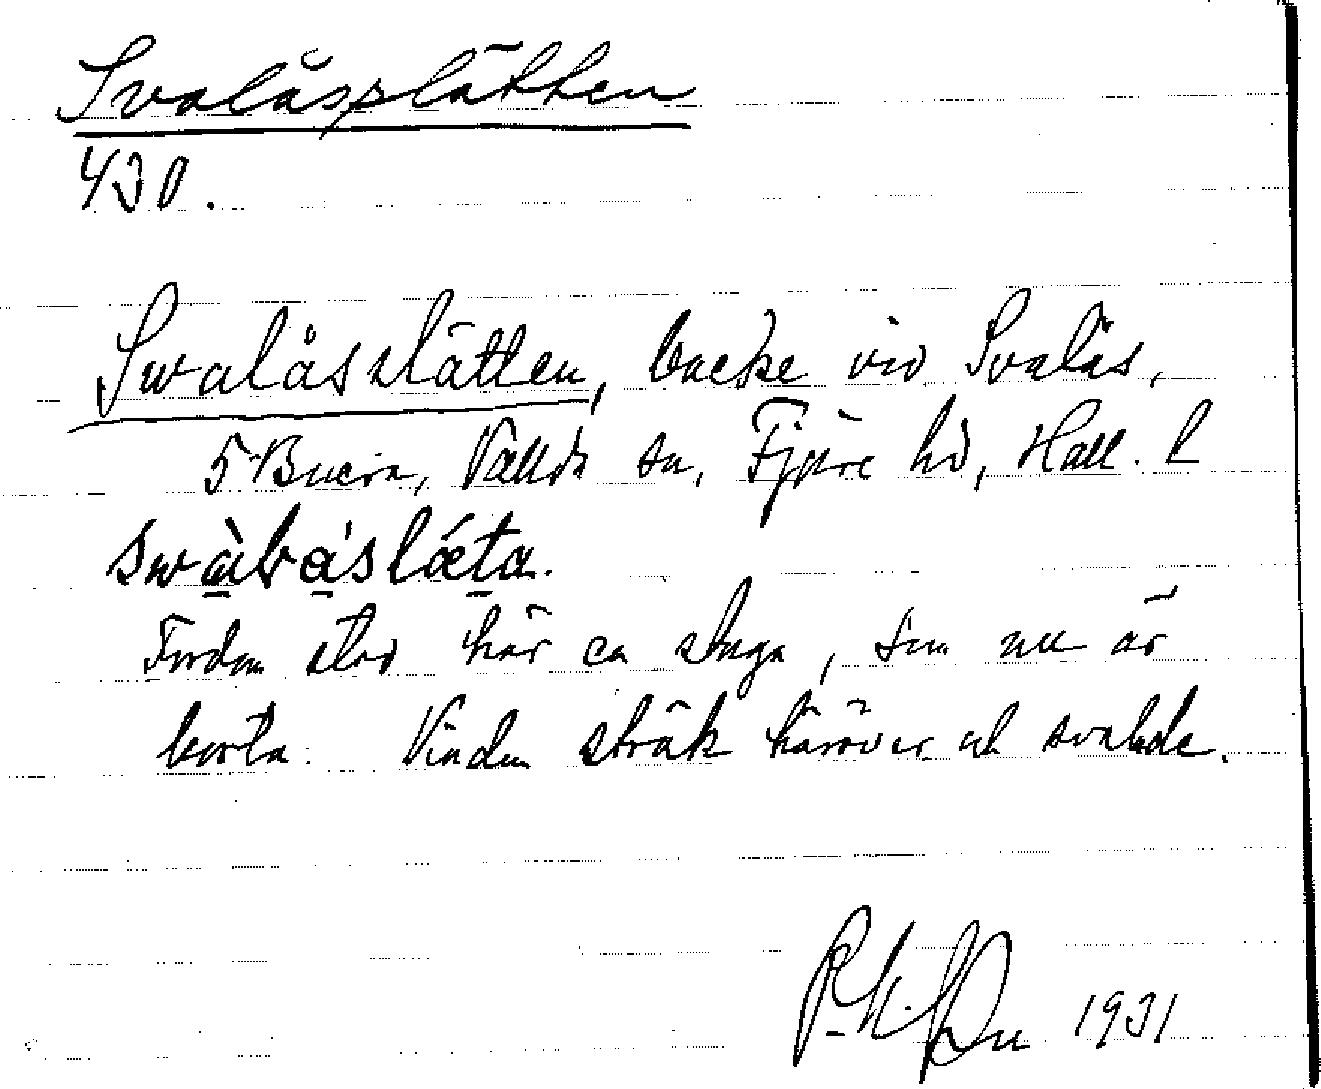 Svalåsplätten
430.
Svalåsslätten, backe vid Svalås,
5 Buera, Vallda sn, Fjäre hd, Hall. l
Fordom stod här en stuga, som nu är
borta. Vinden stråk häröver och svalade.
1931